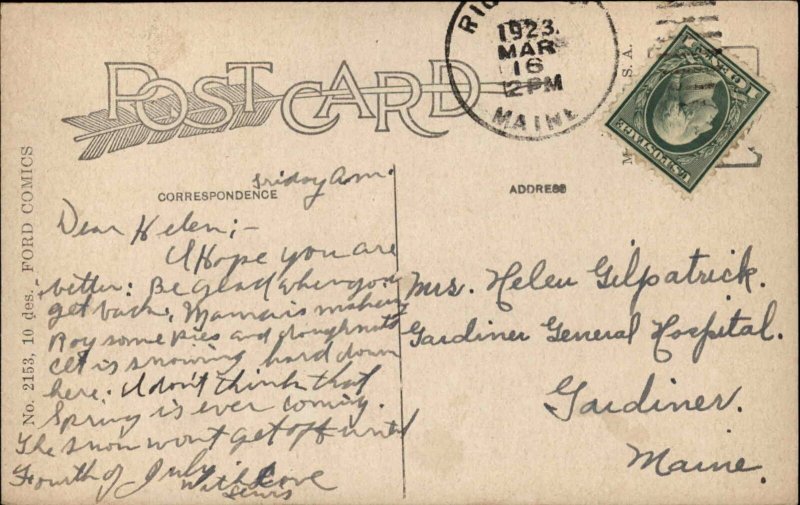 POST CARD
1923.
MAR
16
12 PM
MAINE
S. A.
1 CENT 1
U.S. POSTAGE
CORRESPONDENCE
ADDRESS
No. 2153, 10 des. - FORD COMICS
Friday a.m.
Dear Helen;-
I Hope you are
better: Be glad when you
get back. Mama is making
Roy some pies and doughnuts
it is snowing hard down
here. I don't think that
Spring is ever coming.
The snow wont get off until
Fourth of July.
With Love
Lewis
Mrs. Helen Gilpatrick.
Gardiner General Hospital.
Gardiner.
Maine.